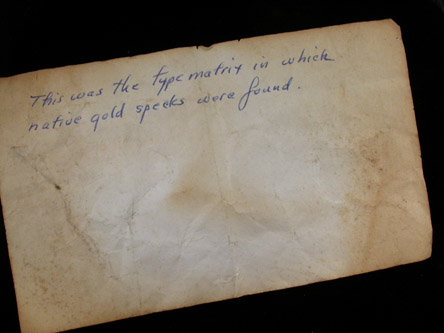 This was the type matrix in which
native gold specks were found.